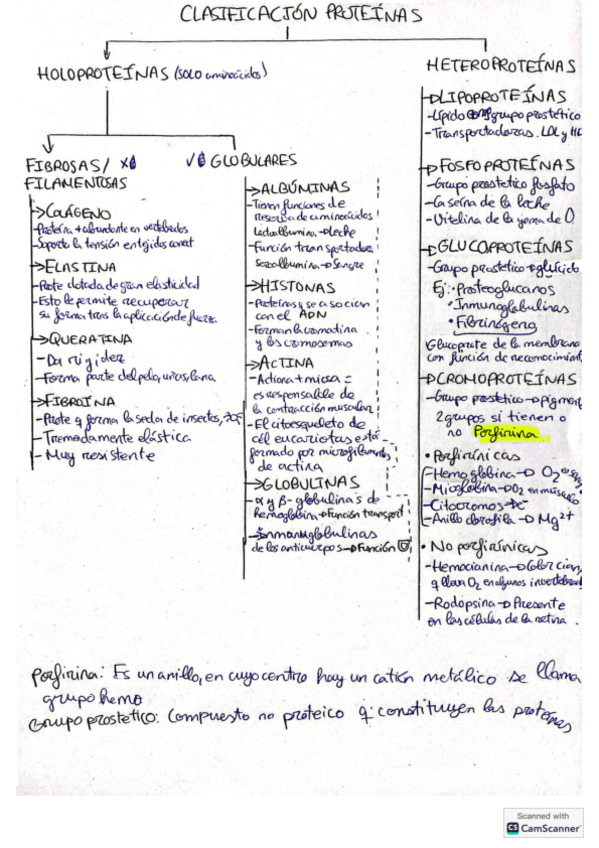 CLASIFICACIÓN PROTEÍNAS
HOLOPROTEÍNAS (SOLO aminoácidos)
FIBROSAS/
FILAMENTOSAS
→COLÁGENO
-Proteína + abundante en vertebrados
-Soporta la tensión en tejidos conect
→ELASTINA
-Prote dotada de gran elasticidad
-Esto le permite recuperar
su forma tras la aplicación de fuerza.
→QUERATINA
-Da rigidez
-Forma parte del pelo, uñas, lana
→FIBROÍNA
-Prote q forma la seda de insectos,
-Tremadamente elástica
-Muy resistente
GLOBULARES
→ALBÚMINAS
-Tienen funciones de
reserva de aminoácidos
Lactoalbumina→leche
-Función transportadora
Seroalbumina→Sangre
→HISTONAS
-Proteínas q se asocian
con el ADN
-Forman la cromatina
y los cromosomas
→ACTINA
-Actina + miosa =
es responsable de
la contracción muscular
-El citoesqueleto de
cél eucariotas está
formado por microfilamentos
de actina
→GLOBULINAS
-α y β-globulinas de
hemoglobina→Función transport
-Inmunoglobulinas
de los anticuerpos→Función
HETEROPROTEÍNAS
→LIPOPROTEÍNAS
-Lípido grupo prostético
-Transportadoras. LDL y H
→FOSFOPROTEÍNAS
-Grupo prostetico fosfato
-Caseína de la leche
-Vitelina de la yema de O
→GLUCOPROTEÍNAS
-Grupo prostético→glúcido
Ej: •Proteoglucanos
•Inmunoglobulinas
•Fibrinógeno
Glucoprote de la membrana
con función de reconocimient
→CROMOPROTEÍNAS
-Grupo prostético→pigment
2 grupos si tienen o
no Porfirina
•Porfirínicas
-Hemoglobina→O2 en sang
-Mioglobina→O2 en músculo
-Citocromos→e-
-Anillo clorofila→Mg2+
•No porfirínicas
-Hemocianina→Color cian,
q lleva O2 en algunos invertebrad
-Rodopsina→Presente
en las células de la retina.
Porfirina: Es un anillo, en cuyo centro hay un catión metálico se llama
grupo hemo
Grupo prostetico: Compuesto no proteico q constituyen las proteínas
Scanned with
CS CamScanner